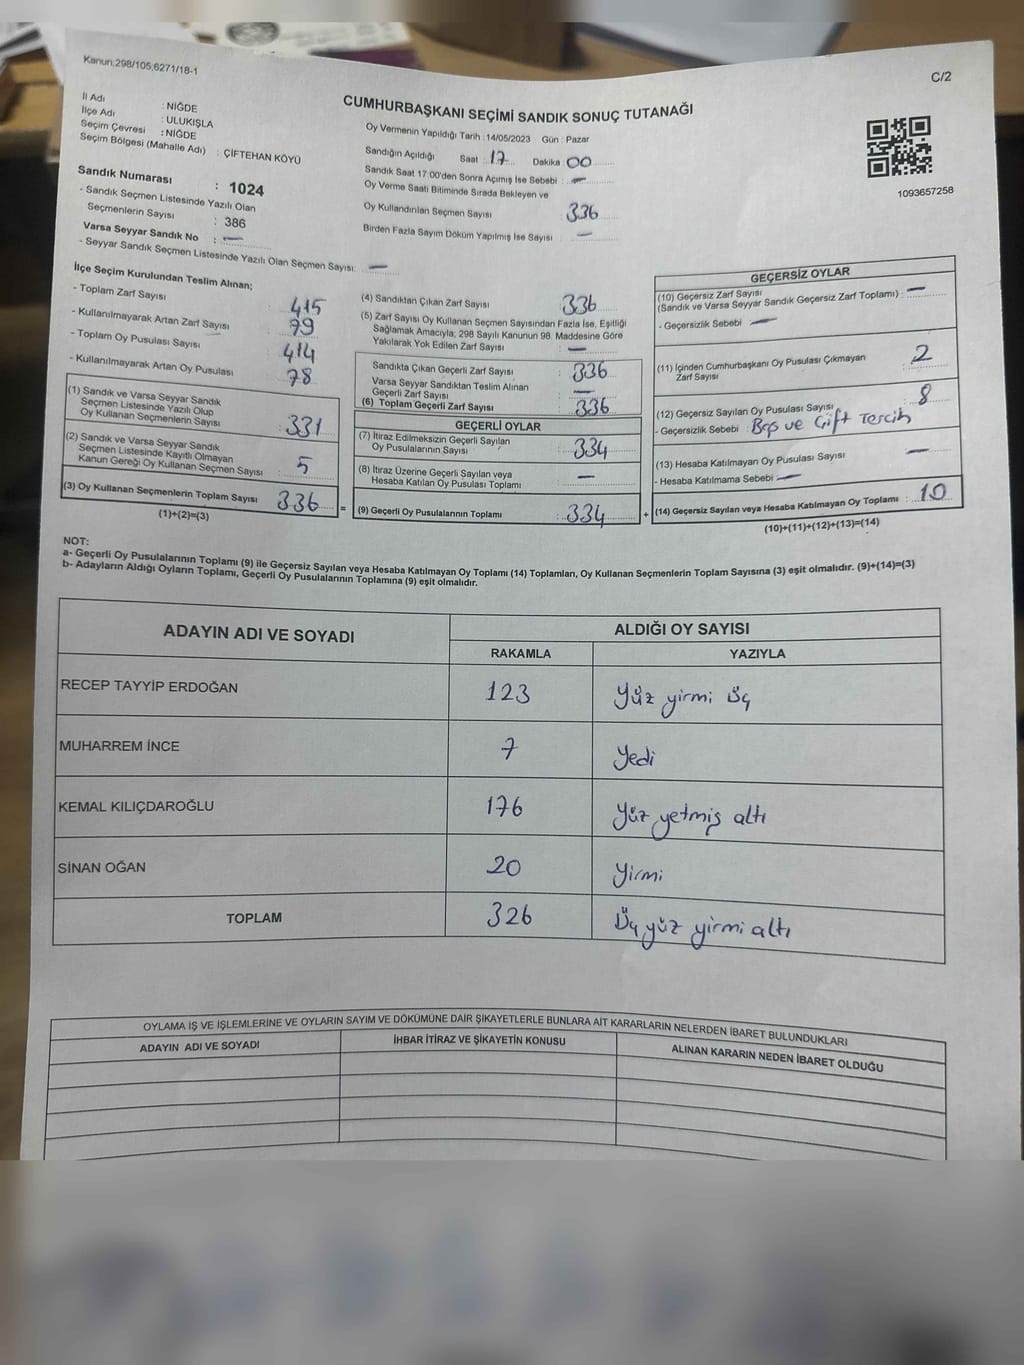 Kanun:298/105;6271/18-1
C/2
CUMHURBAŞKANI SEÇİMİ SANDIK SONUÇ TUTANAĞI
İl Adı : NİĞDE
İlçe Adı : ULUKIŞLA
Seçim Çevresi : NİĞDE
Seçim Bölgesi (Mahalle Adı) : ÇİFTEHAN KÖYÜ
Sandık Numarası : 1024
- Sandık Seçmen Listesinde Yazılı Olan
Seçmenlerin Sayısı : 386
Varsa Seyyar Sandık No : —
- Seyyar Sandık Seçmen Listesinde Yazılı Olan Seçmen Sayısı: —
Oy Vermenin Yapıldığı Tarih : 14/05/2023 Gün : Pazar
Sandığın Açıldığı Saat : 17 Dakika : 00
Sandık Saat 17:00'den Sonra Açımış İse Sebebi : —
Oy Verme Saati Bitiminde Sırada Bekleyen ve
Oy Kullandırılan Seçmen Sayısı : 336
Birden Fazla Sayım Döküm Yapılmış İse Sayısı : —
1093657258
İlçe Seçim Kurulundan Teslim Alınan;
- Toplam Zarf Sayısı : 415
- Kullanılmayarak Artan Zarf Sayısı : 79
- Toplam Oy Pusulası Sayısı : 414
- Kullanılmayarak Artan Oy Pusulası : 78
(1) Sandık ve Varsa Seyyar Sandık
Seçmen Listesinde Yazılı Olup
Oy Kullanan Seçmenlerin Sayısı : 331
(2) Sandık ve Varsa Seyyar Sandık
Seçmen Listesinde Kayıtlı Olmayan
Kanun Gereği Oy Kullanan Seçmen Sayısı : 5
(3) Oy Kullanan Seçmenlerin Toplam Sayısı : 336
(1)+(2)=(3)
=
(4) Sandıktan Çıkan Zarf Sayısı : 336
(5) Zarf Sayısı Oy Kullanan Seçmen Sayısından Fazla İse, Eşitliği
Sağlamak Amacıyla; 298 Sayılı Kanunun 98. Maddesine Göre
Yakılarak Yok Edilen Zarf Sayısı : —
Sandıkta Çıkan Geçerli Zarf Sayısı : 336
Varsa Seyyar Sandıktan Teslim Alınan
Geçerli Zarf Sayısı : —
(6) Toplam Geçerli Zarf Sayısı : 336
GEÇERLİ OYLAR
(7) İtiraz Edilmeksizin Geçerli Sayılan
Oy Pusulalarının Sayısı : 334
(8) İtiraz Üzerine Geçerli Sayılan veya
Hesaba Katılan Oy Pusulası Toplamı : —
(9) Geçerli Oy Pusulalarının Toplamı : 334
+
GEÇERSİZ OYLAR
(10) Geçersiz Zarf Sayısı
(Sandık ve Varsa Seyyar Sandık Geçersiz Zarf Toplamı) : —
- Geçersizlik Sebebi : —
(11) İçinden Cumhurbaşkanı Oy Pusulası Çıkmayan
Zarf Sayısı : 2
(12) Geçersiz Sayılan Oy Pusulası Sayısı : 8
- Geçersizlik Sebebi : Boş ve Çift Tercih
(13) Hesaba Katılmayan Oy Pusulası Sayısı : —
- Hesaba Katılmama Sebebi : —
(14) Geçersiz Sayılan veya Hesaba Katılmayan Oy Toplamı : 10
(10)+(11)+(12)+(13)=(14)
NOT:
a- Geçerli Oy Pusulalarının Toplamı (9) ile Geçersiz Sayılan veya Hesaba Katılmayan Oy Toplamı (14) Toplamları, Oy Kullanan Seçmenlerin Toplam Sayısına (3) eşit olmalıdır. (9)+(14)=(3)
b- Adayların Aldığı Oyların Toplamı, Geçerli Oy Pusulalarının Toplamına (9) eşit olmalıdır.
ADAYIN ADI VE SOYADI ALDIĞI OY SAYISI
RAKAMLA YAZIYLA
RECEP TAYYİP ERDOĞAN 123 Yüz yirmi üç
MUHARREM İNCE 7 Yedi
KEMAL KILIÇDAROĞLU 176 Yüz yetmiş altı
SİNAN OĞAN 20 Yirmi
TOPLAM 326 Üç yüz yirmi altı
OYLAMA İŞ VE İŞLEMLERİNE VE OYLARIN SAYIM VE DÖKÜMÜNE DAİR ŞİKAYETLERLE BUNLARA AİT KARARLARIN NELERDEN İBARET BULUNDUKLARI
ADAYIN ADI VE SOYADI İHBAR İTİRAZ VE ŞİKAYETİN KONUSU ALINAN KARARIN NEDEN İBARET OLDUĞU